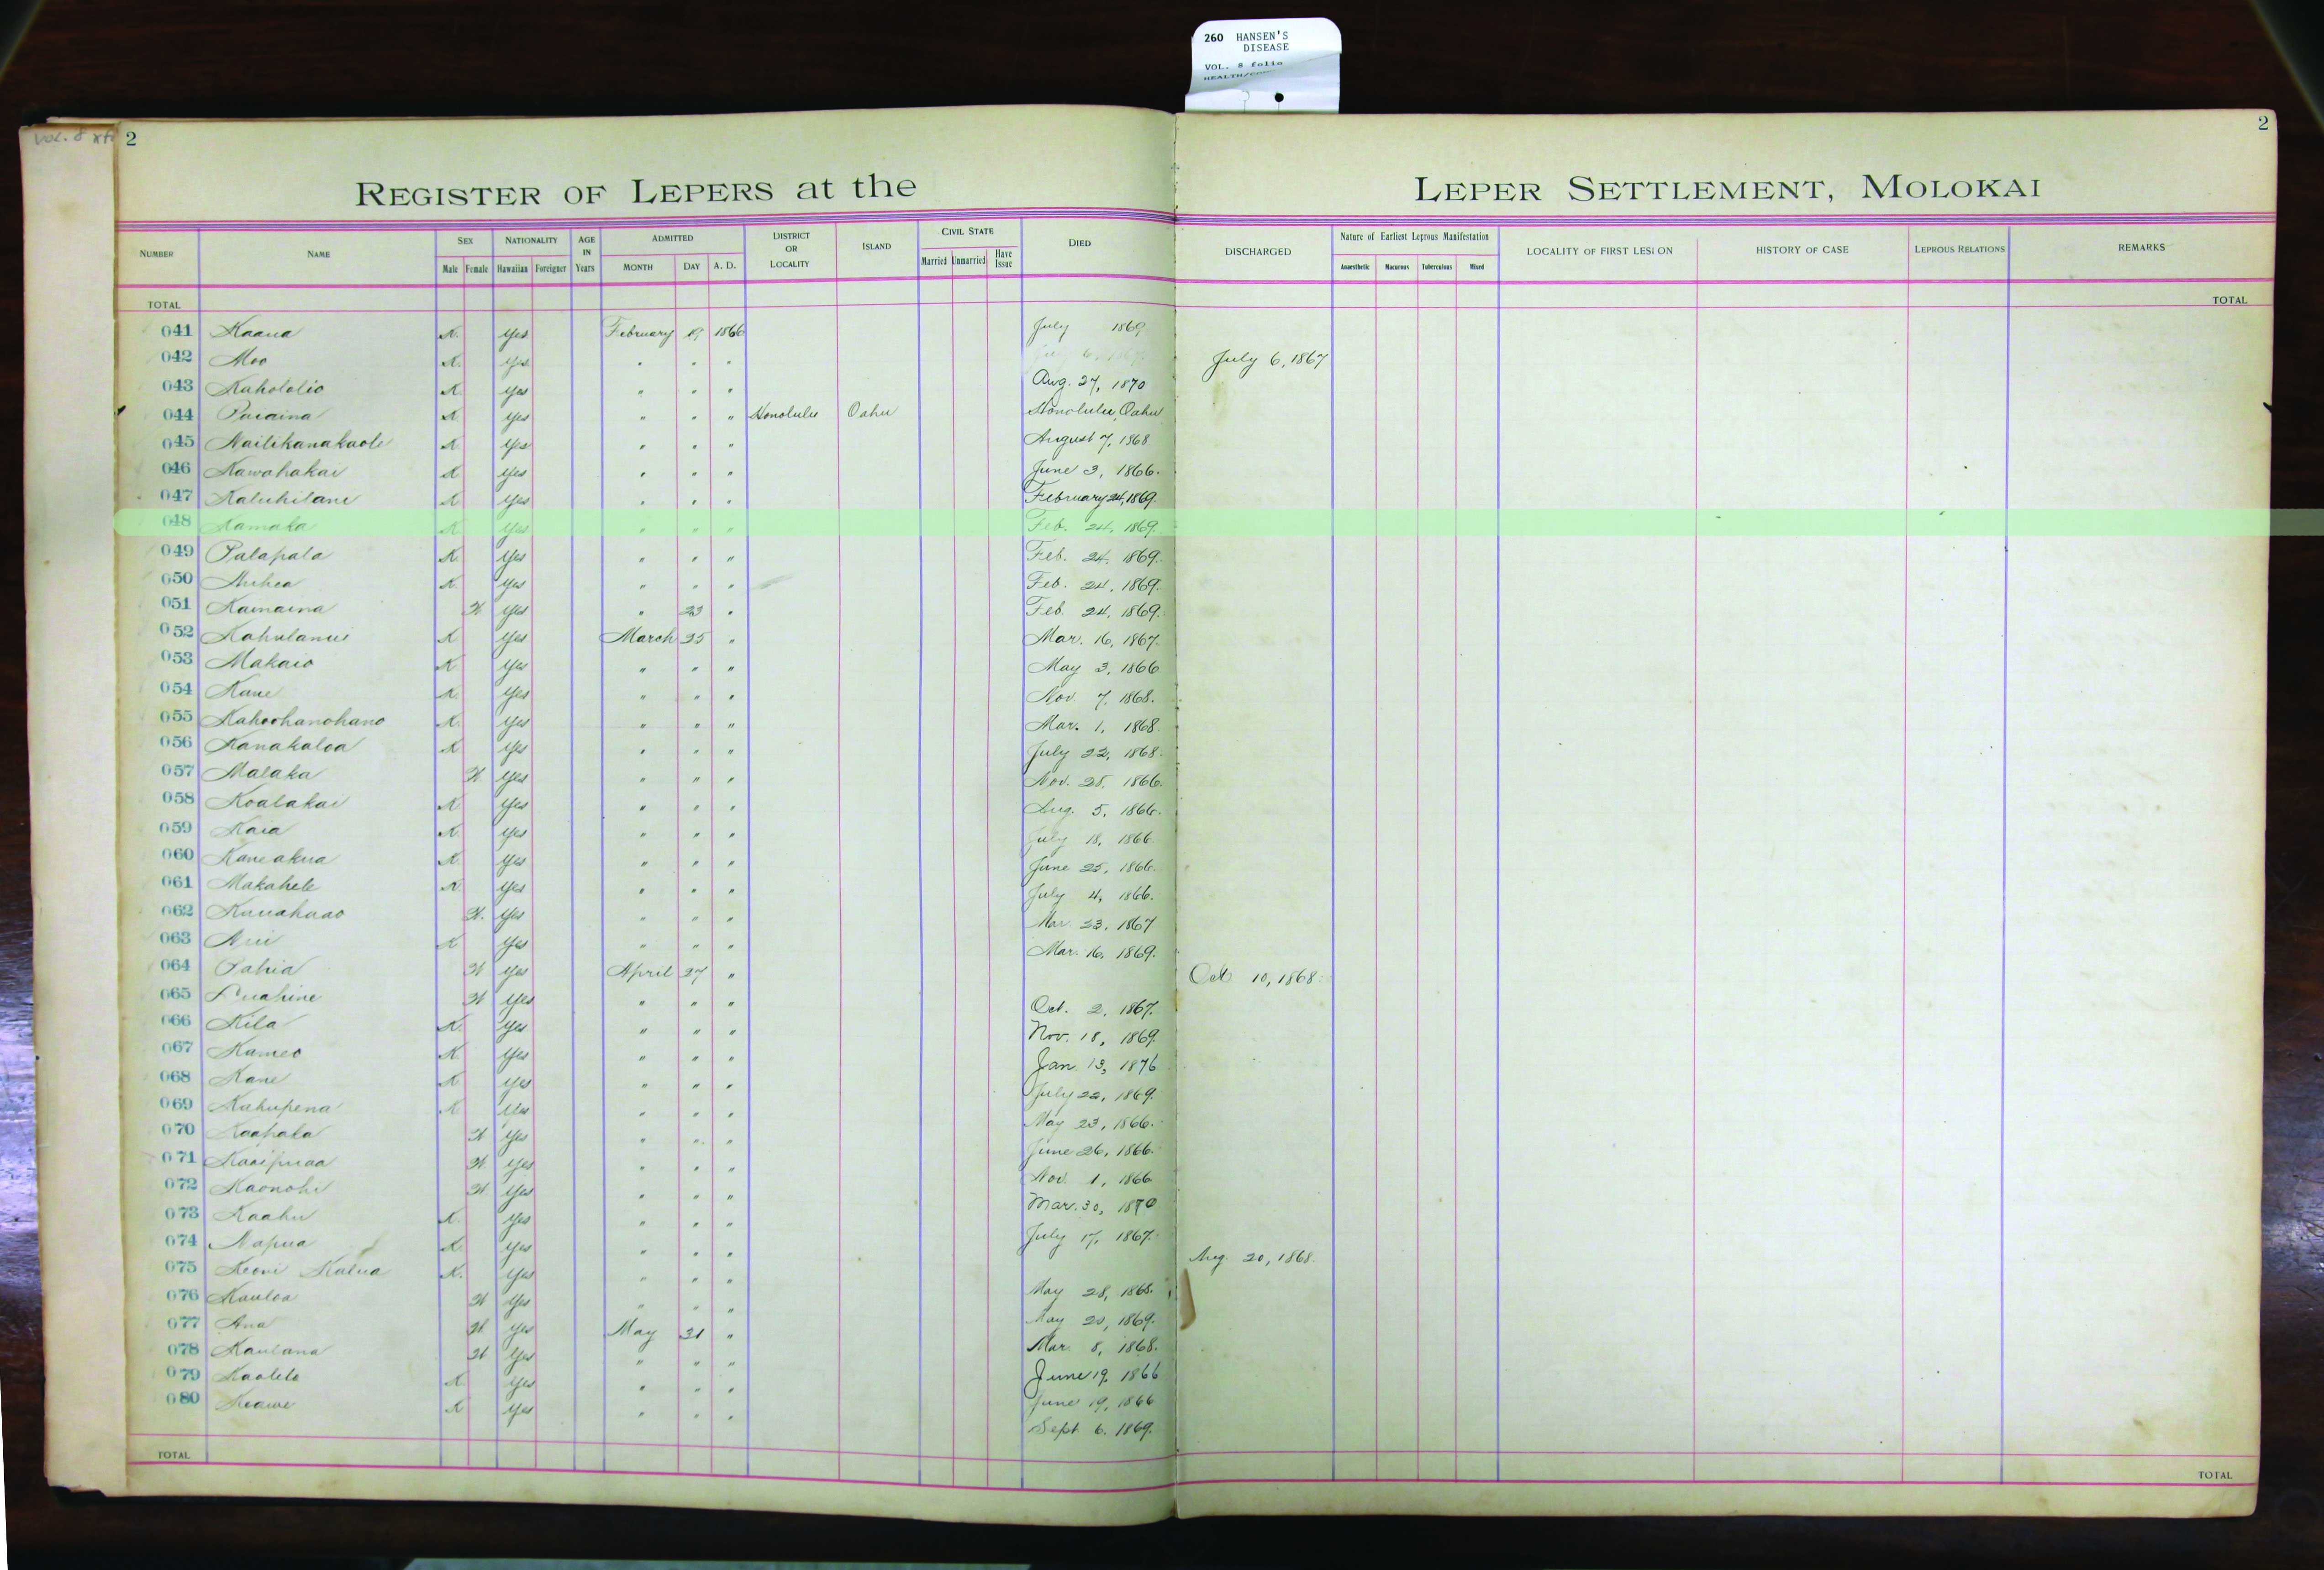 260 HANSEN'S
DISEASE
VOL. 8 folio
Vol. 8
2
2
REGISTER OF LEPERS at the LEPER SETTLEMENT, MOLOKAI
NUMBER NAME SEX Male Female NATIONALITY Hawaiian Foreigner AGE IN Years ADMITTED MONTH DAY A. D. DISTRICT OR LOCALITY ISLAND CIVIL STATE Married Unmarried Have Issue DIED DISCHARGED Nature of Earliest Leprous Manifestation Anaesthetic Macurous Tuberculous Mixed LOCALITY OF FIRST LESION HISTORY OF CASE LEPROUS RELATIONS REMARKS
TOTAL TOTAL
041 Kaaua K. Yes February 19 1866 July 1869
042 Moo K. Yes " " " July 6, 1867
043 Kahololio K Yes " " " Aug. 27, 1870
044 K Yes " " " Honolulu Oahu Honolulu, Oahu
045 Nailikanakaole K Yes " " " August 7, 1868
046 Kawahakai K Yes " " " June 3, 1866.
047 Kaluhilani K Yes " " " February 24, 1869.
048 Kamaka K Yes " " " Feb. 24, 1869.
049 Palapala K. Yes " " " Feb. 24, 1869.
050 K. Yes " " " Feb. 24, 1869.
051 Kamaina W Yes " 23 " Feb. 24, 1869.
052 Kahulanui K Yes March 25 " Mar. 16, 1867.
053 Makaio K Yes " " " May 3, 1866
054 Kane K. Yes " " " Nov. 7, 1868.
055 Kahoohanohano K. Yes " " " Mar. 1, 1868.
056 Kanakaloa K Yes " " " July 22, 1868.
057 Malaka W Yes " " " Nov. 28, 1866.
058 Koalakai K Yes " " " Aug. 5, 1866.
059 Kaia K. Yes " " " July 18, 1866.
060 Kaneakua K. Yes " " " June 25, 1866.
061 Makahele K. Yes " " " July 4, 1866.
062 Kauahaao W. Yes " " " Mar. 23, 1867
063 K Yes " " " Mar. 16, 1869.
064 Pahia W Yes April 27 " Oct 10, 1868.
065 Luahine W Yes " " " Oct. 2, 1867.
066 Kila K. Yes " " " Nov. 18, 1869.
067 Kameo K Yes " " " Jan. 13, 1876
068 Kane K Yes " " " July 22, 1869.
069 Kahupena K Yes " " " May 23, 1866.
070 Kaahala W Yes " " " June 26, 1866.
071 Kaaipuaa W. Yes " " " Nov. 1, 1866
072 Kaonohi W Yes " " " Mar. 30, 1870
073 Kaahu K. Yes " " " July 17, 1867.
074 Napua K. Yes " " " Aug. 20, 1868.
075 Keoni Kalua K. Yes " " " May 28, 1868.
076 Kauloa W Yes " " " May 20, 1869.
077 Ana W. Yes May 31 " Mar. 8, 1868.
078 Kaulana W Yes " " " June 19, 1866
079 Kaolelo K Yes " " " June 19, 1866
080 Keawe K Yes " " " Sept. 6. 1869.
TOTAL TOTAL